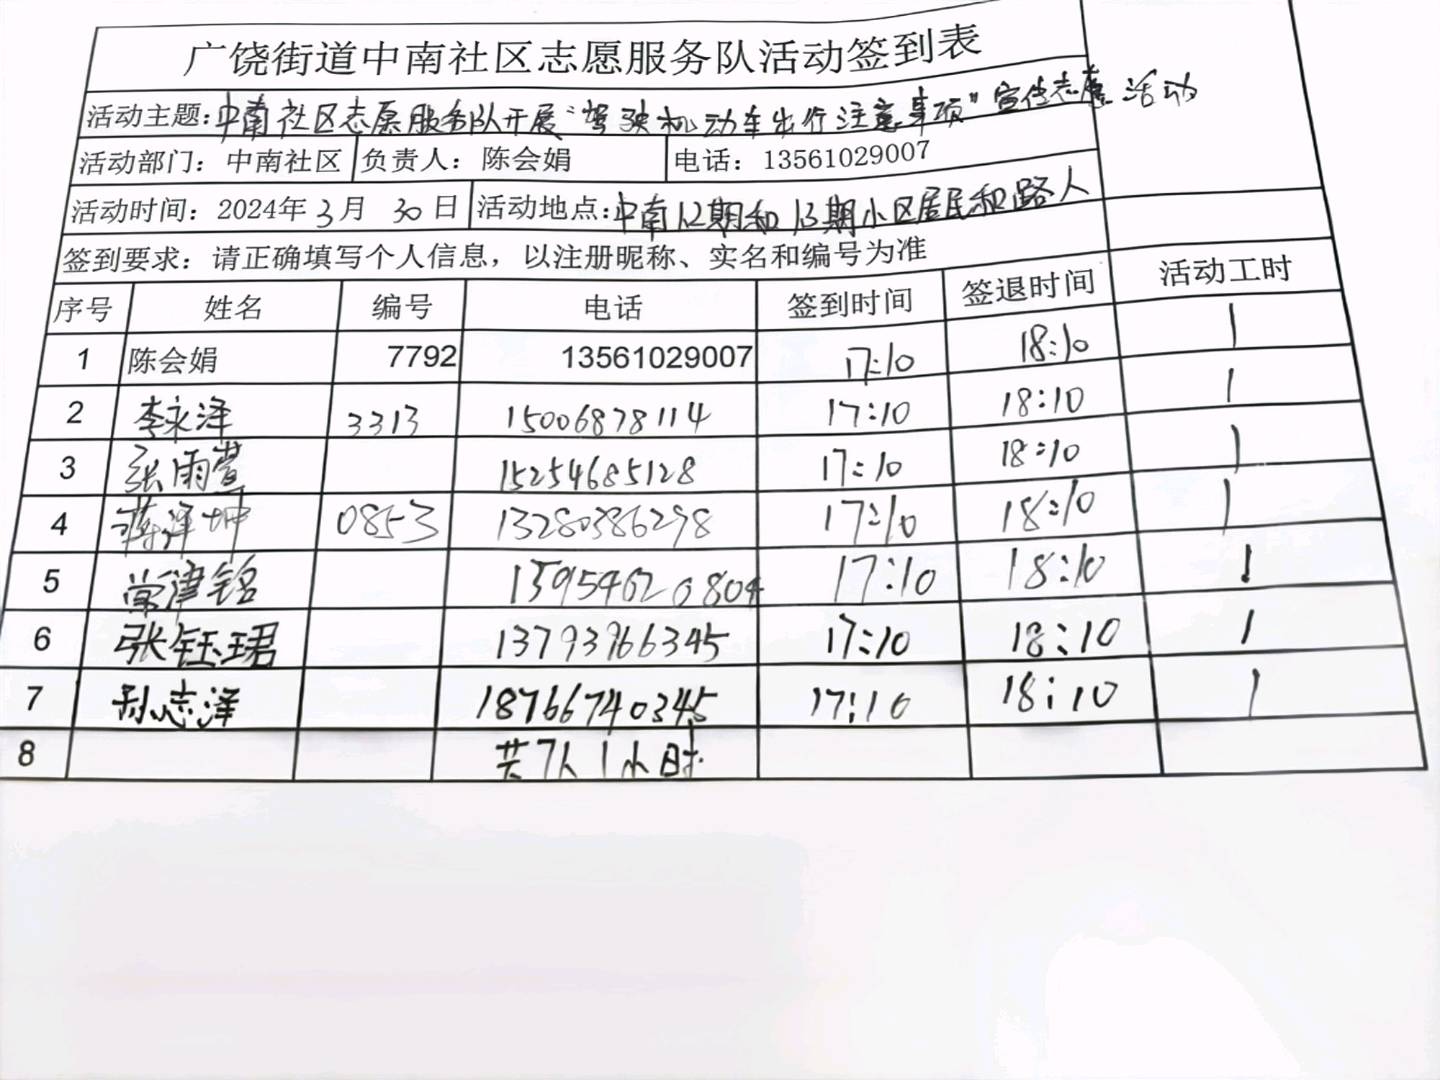 广饶街道中南社区志愿服务队活动签到表
活动主题:中南社区志愿服务队开展“驾驶机动车出行注意事项”宣传志愿活动
活动部门：中南社区 负责人：陈会娟 电话：13561029007
活动时间：2024年3月30日 活动地点:中南12期和13期小区居民和路人
签到要求：请正确填写个人信息，以注册昵称、实名和编号为准
序号 姓名 编号 电话 签到时间 签退时间 活动工时
1 陈会娟 7792 13561029007 17:10 18:10 1
2 李永泽 3313 15006878114 17:10 18:10 1
3 张雨萱 15254685128 17:10 18:10 1
4 蒋泽坤 0853 13280386298 17:10 18:10 1
5 常津铭 13954620804 17:10 18:10 1
6 张钰珺 13793966345 17:10 18:10 1
7 孙志泽 18766740345 17:10 18:10 1
8 共7人1小时